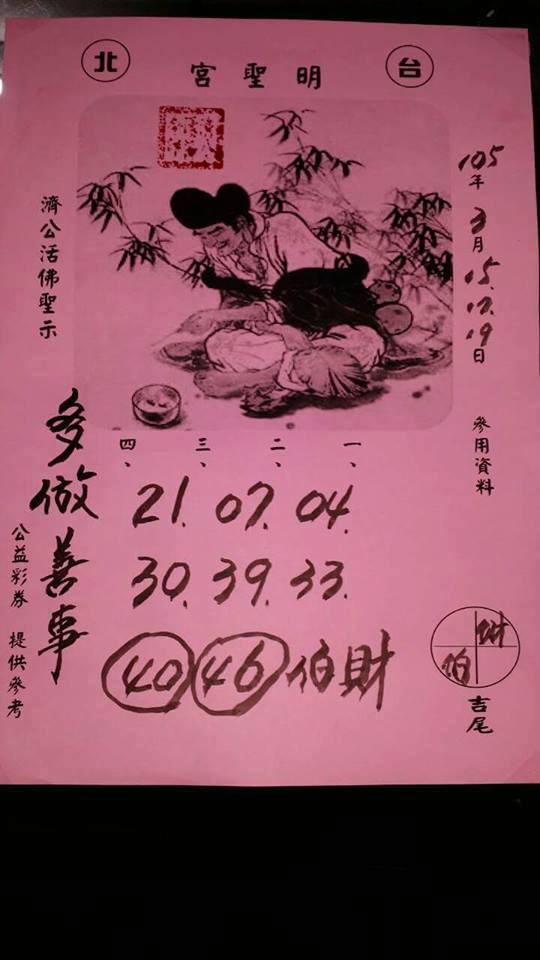 台北
明聖宮
105年3月15.17.19日
參用資料
濟公活佛聖示
一、二、三、四、
21. 07. 04.
30. 39. 33.
40 46 伯財
多做善事
公益彩券 提供參考
財
伯
吉尾